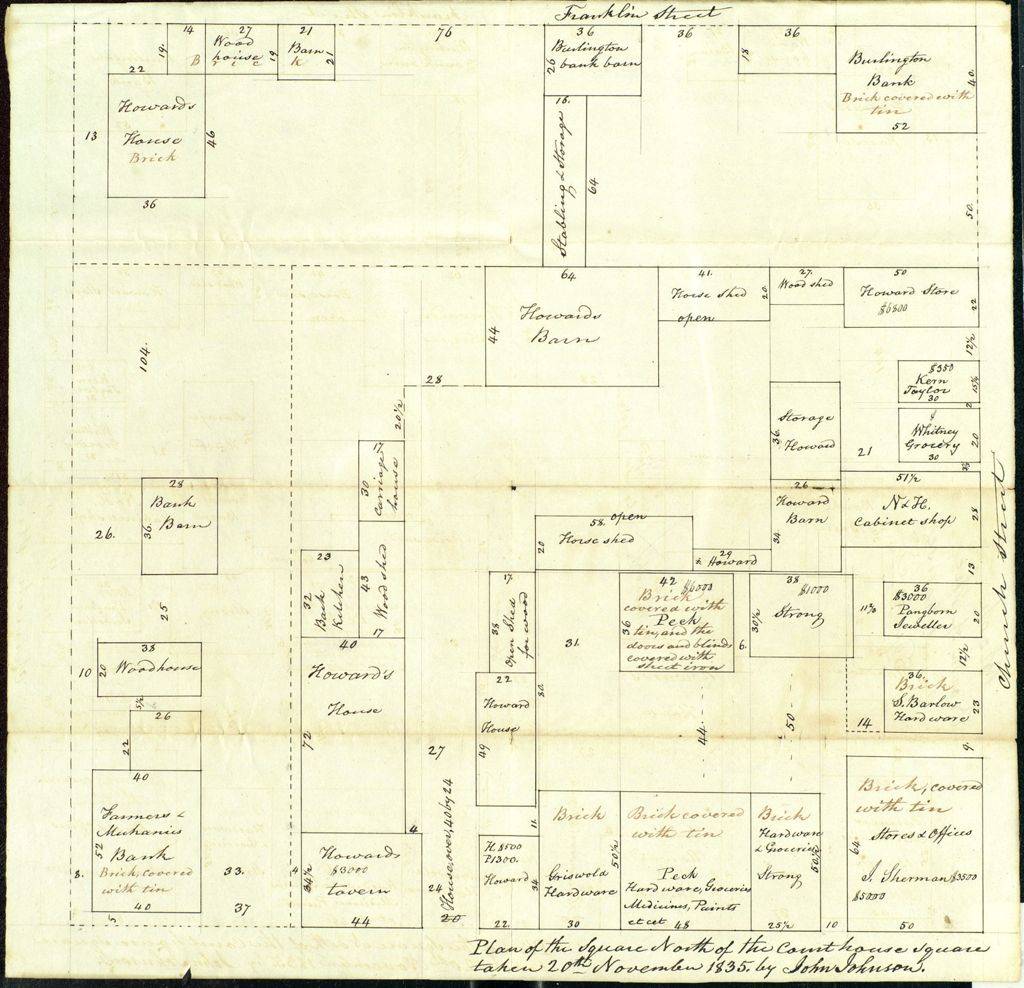 Franklin Street
14
27
21
76
36
36
36
19
B
Wood
house
19
Barn
21
26
Burlington
bank barn
18
Burlington
Bank
Brick covered with
tin
40
52
22
Howards
House
Brick
13
46
36
16.
Stabling & Storage
64
50.
64
Howards
Barn
44
41.
Horse shed
open
20
27.
Wood shed
50
Howard Store
$6800
22
12½
104.
28
20½
$350
Kern
Taylor
30
15½
2
Whitney
Grocery
30
20
3½
Storage
Howard
36
21
17
30
Carriage
house
26
Howard
Barn
34
51½
N & H.
Cabinet shop
28
Church Street
28
Bank
Barn
36.
26.
25
58. open
Horse shed
20
29
Howard
13
23
32
Back
Kitchen
43
Wood shed
17
17.
38
Open Shed
for wood
31.
42 $6000
Brick
covered with
Peck
tin, and the
doors and blinds
covered with
sheet iron
36
6.
38
$1000
Strong
30½
36
$3000
Pangborn
Jeweller
20
12½
38
Woodhouse
20
10
5½
26
22
40
Howard's
House
72
27
4
22
Howard
House
49
80.
11.
44
50
36.
Brick
S. Barlow
Hardware
23
14
9.
40
Farmers &
Mechanics
Bank
Brick, covered
with tin
52
8.
40
33.
37
5
Howards
$3000
tavern
34½
4
44
House over, 40 by 24
24
20
H $500
P1300.
Howard
34
22
Brick
Griswold
Hardware
50½
30
Brick covered
with tin
Peck
Hardware, Groceries
Medicines, Paints
et cet
48
Brick
Hardware
& Groceries
Strong
50½
25½
10
Brick, covered
with tin
Stores & Offices
64
J. Sherman $3500
$5000
50
Plan of the Square North of the Court house Square
taken 20th November 1835. by John Johnson.